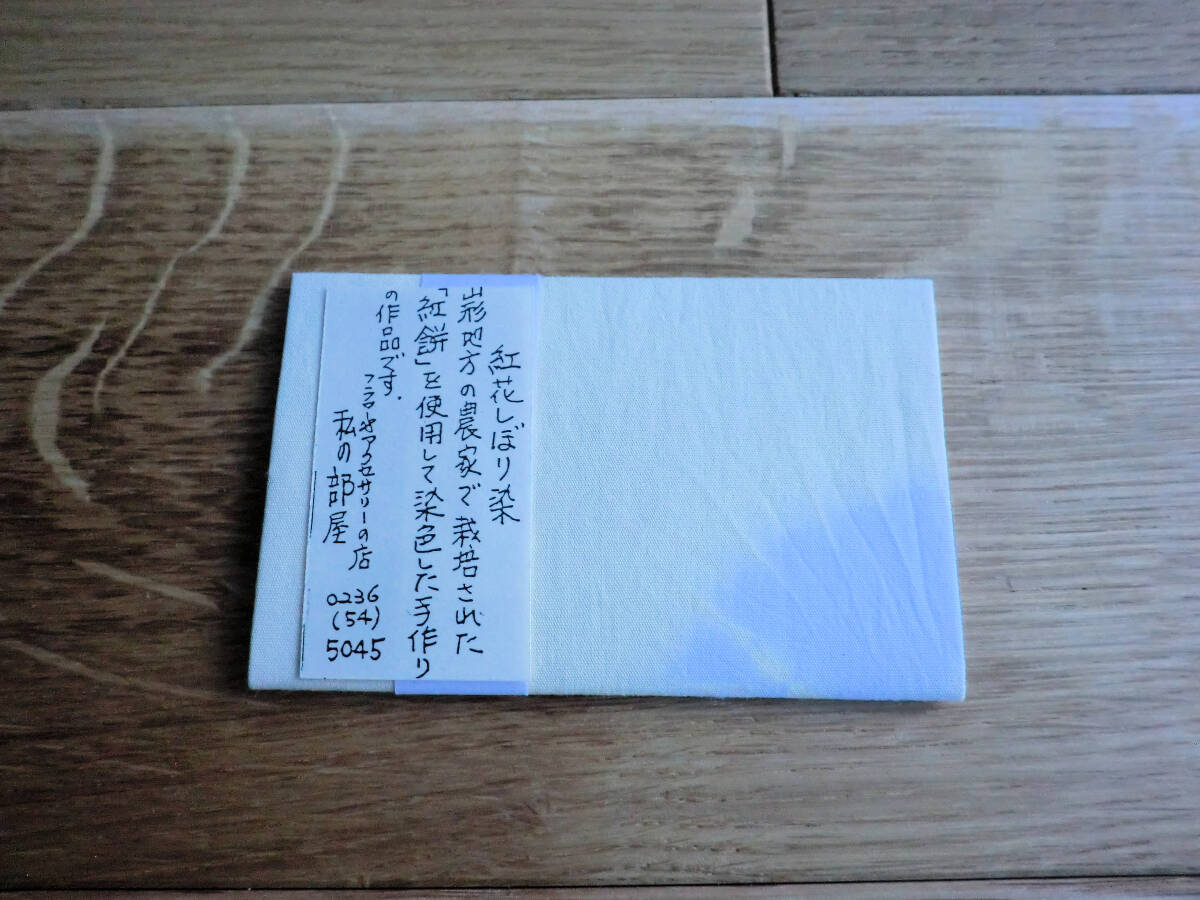 紅花しぼり染
山形地方の農家で栽培された
「紅餅」を使用して染色した手作り
の作品です.
フラワーアクセサリーの店
私の部屋
0236
(54)
5045